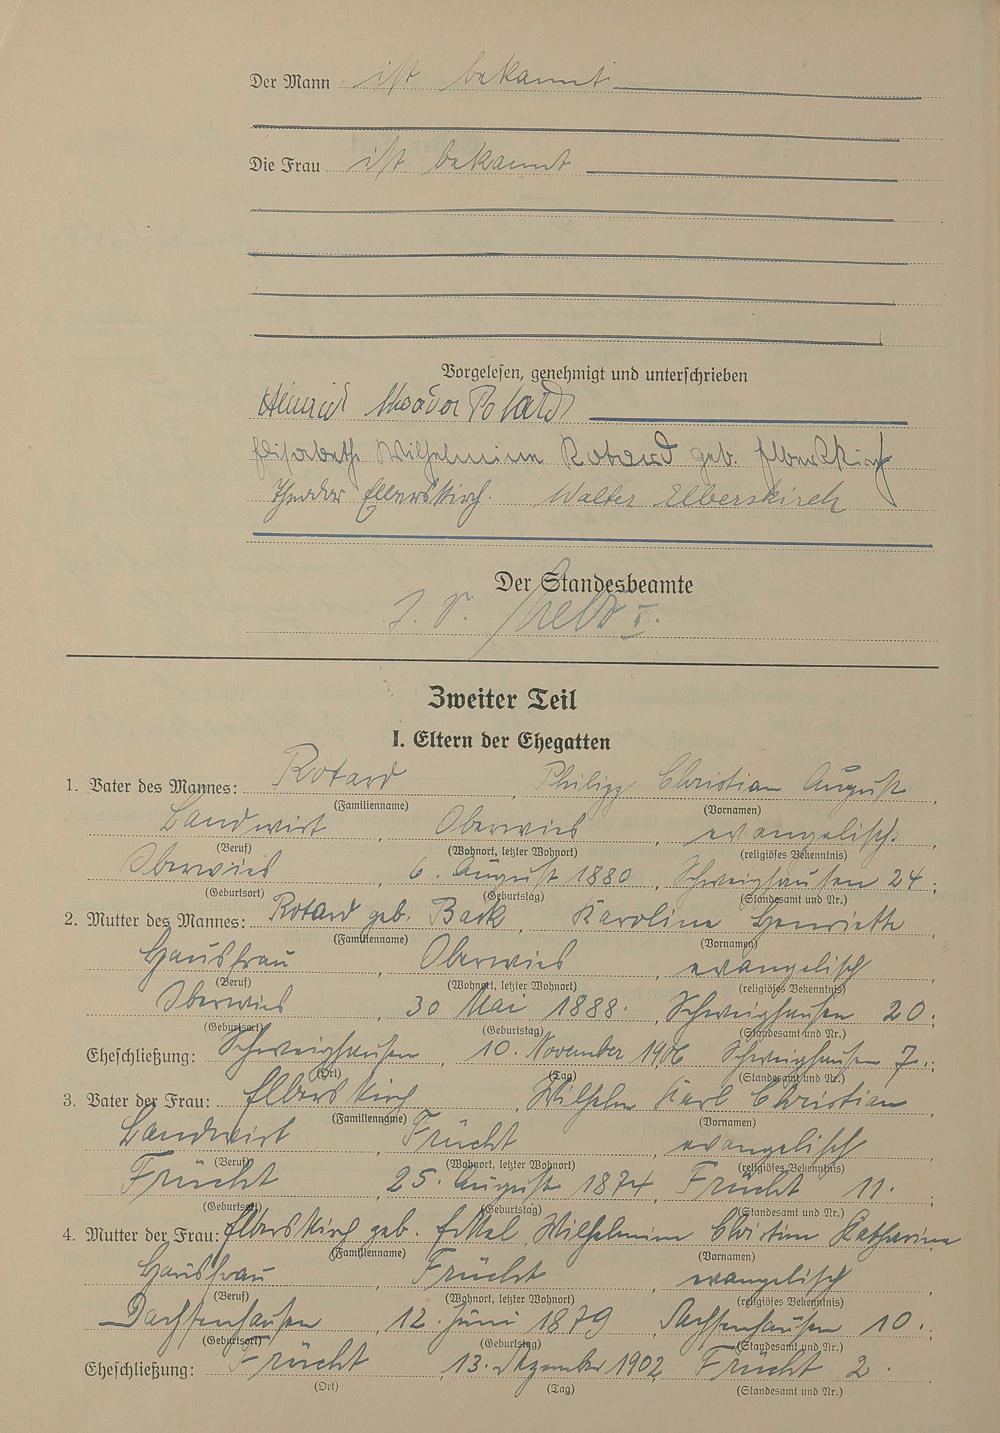 Der Mann ist bekannt
Die Frau ist bekannt
Vorgelesen, genehmigt und unterschrieben
Heinrich Theodor Rotard
Elisabethe Wilhelmine Rotard geb. Elberskirch
Theodor Elberskirch. Walter Elberskirch
Der Standesbeamte
Zweiter Teil
I. Eltern der Ehegatten
1. Vater des Mannes: Rotard, Philipp Christian August,
(Familienname) (Vornamen)
Landwirt, Oberwies, evangelisch.
(Beruf) (Wohnort, letzter Wohnort) (religiöses Bekenntnis)
Oberwies, 6. August 1880, Schweighausen 24;
(Geburtsort) (Geburtstag) (Standesamt und Nr.)
2. Mutter des Mannes: Rotard geb. Back, Karoline Henriette,
(Familienname) (Vornamen)
Hausfrau, Oberwies, evangelisch
(Beruf) (Wohnort, letzter Wohnort) (religiöses Bekenntnis)
Oberwies, 30 Mai 1888., Schweighausen 20.;
(Geburtsort) (Geburtstag) (Standesamt und Nr.)
Eheschließung: Schweighausen, 10. November 1906 Schweighausen 7.;
(Ort) (Tag) (Standesamt und Nr.)
3. Vater der Frau: Elberskirch, Wilhelm Karl Christian,
(Familienname) (Vornamen)
Landwirt, Frücht, evangelisch
(Beruf) (Wohnort, letzter Wohnort) (religiöses Bekenntnis)
Frücht, 25. August 1874, Frücht 11.;
(Geburtsort) (Geburtstag) (Standesamt und Nr.)
4. Mutter der Frau: Elberskirch geb. Wilhelmine Christine Katharine
(Familienname) (Vornamen)
Hausfrau, Frücht, evangelisch
(Beruf) (Wohnort, letzter Wohnort) (religiöses Bekenntnis)
Dachsenhausen, 12. Juni 1879, Dachsenhausen 10.;
(Geburtsort) (Geburtstag) (Standesamt und Nr.)
Eheschließung: Frücht, 13. Dezember 1902, Frücht 2.
(Ort) (Tag) (Standesamt und Nr.)